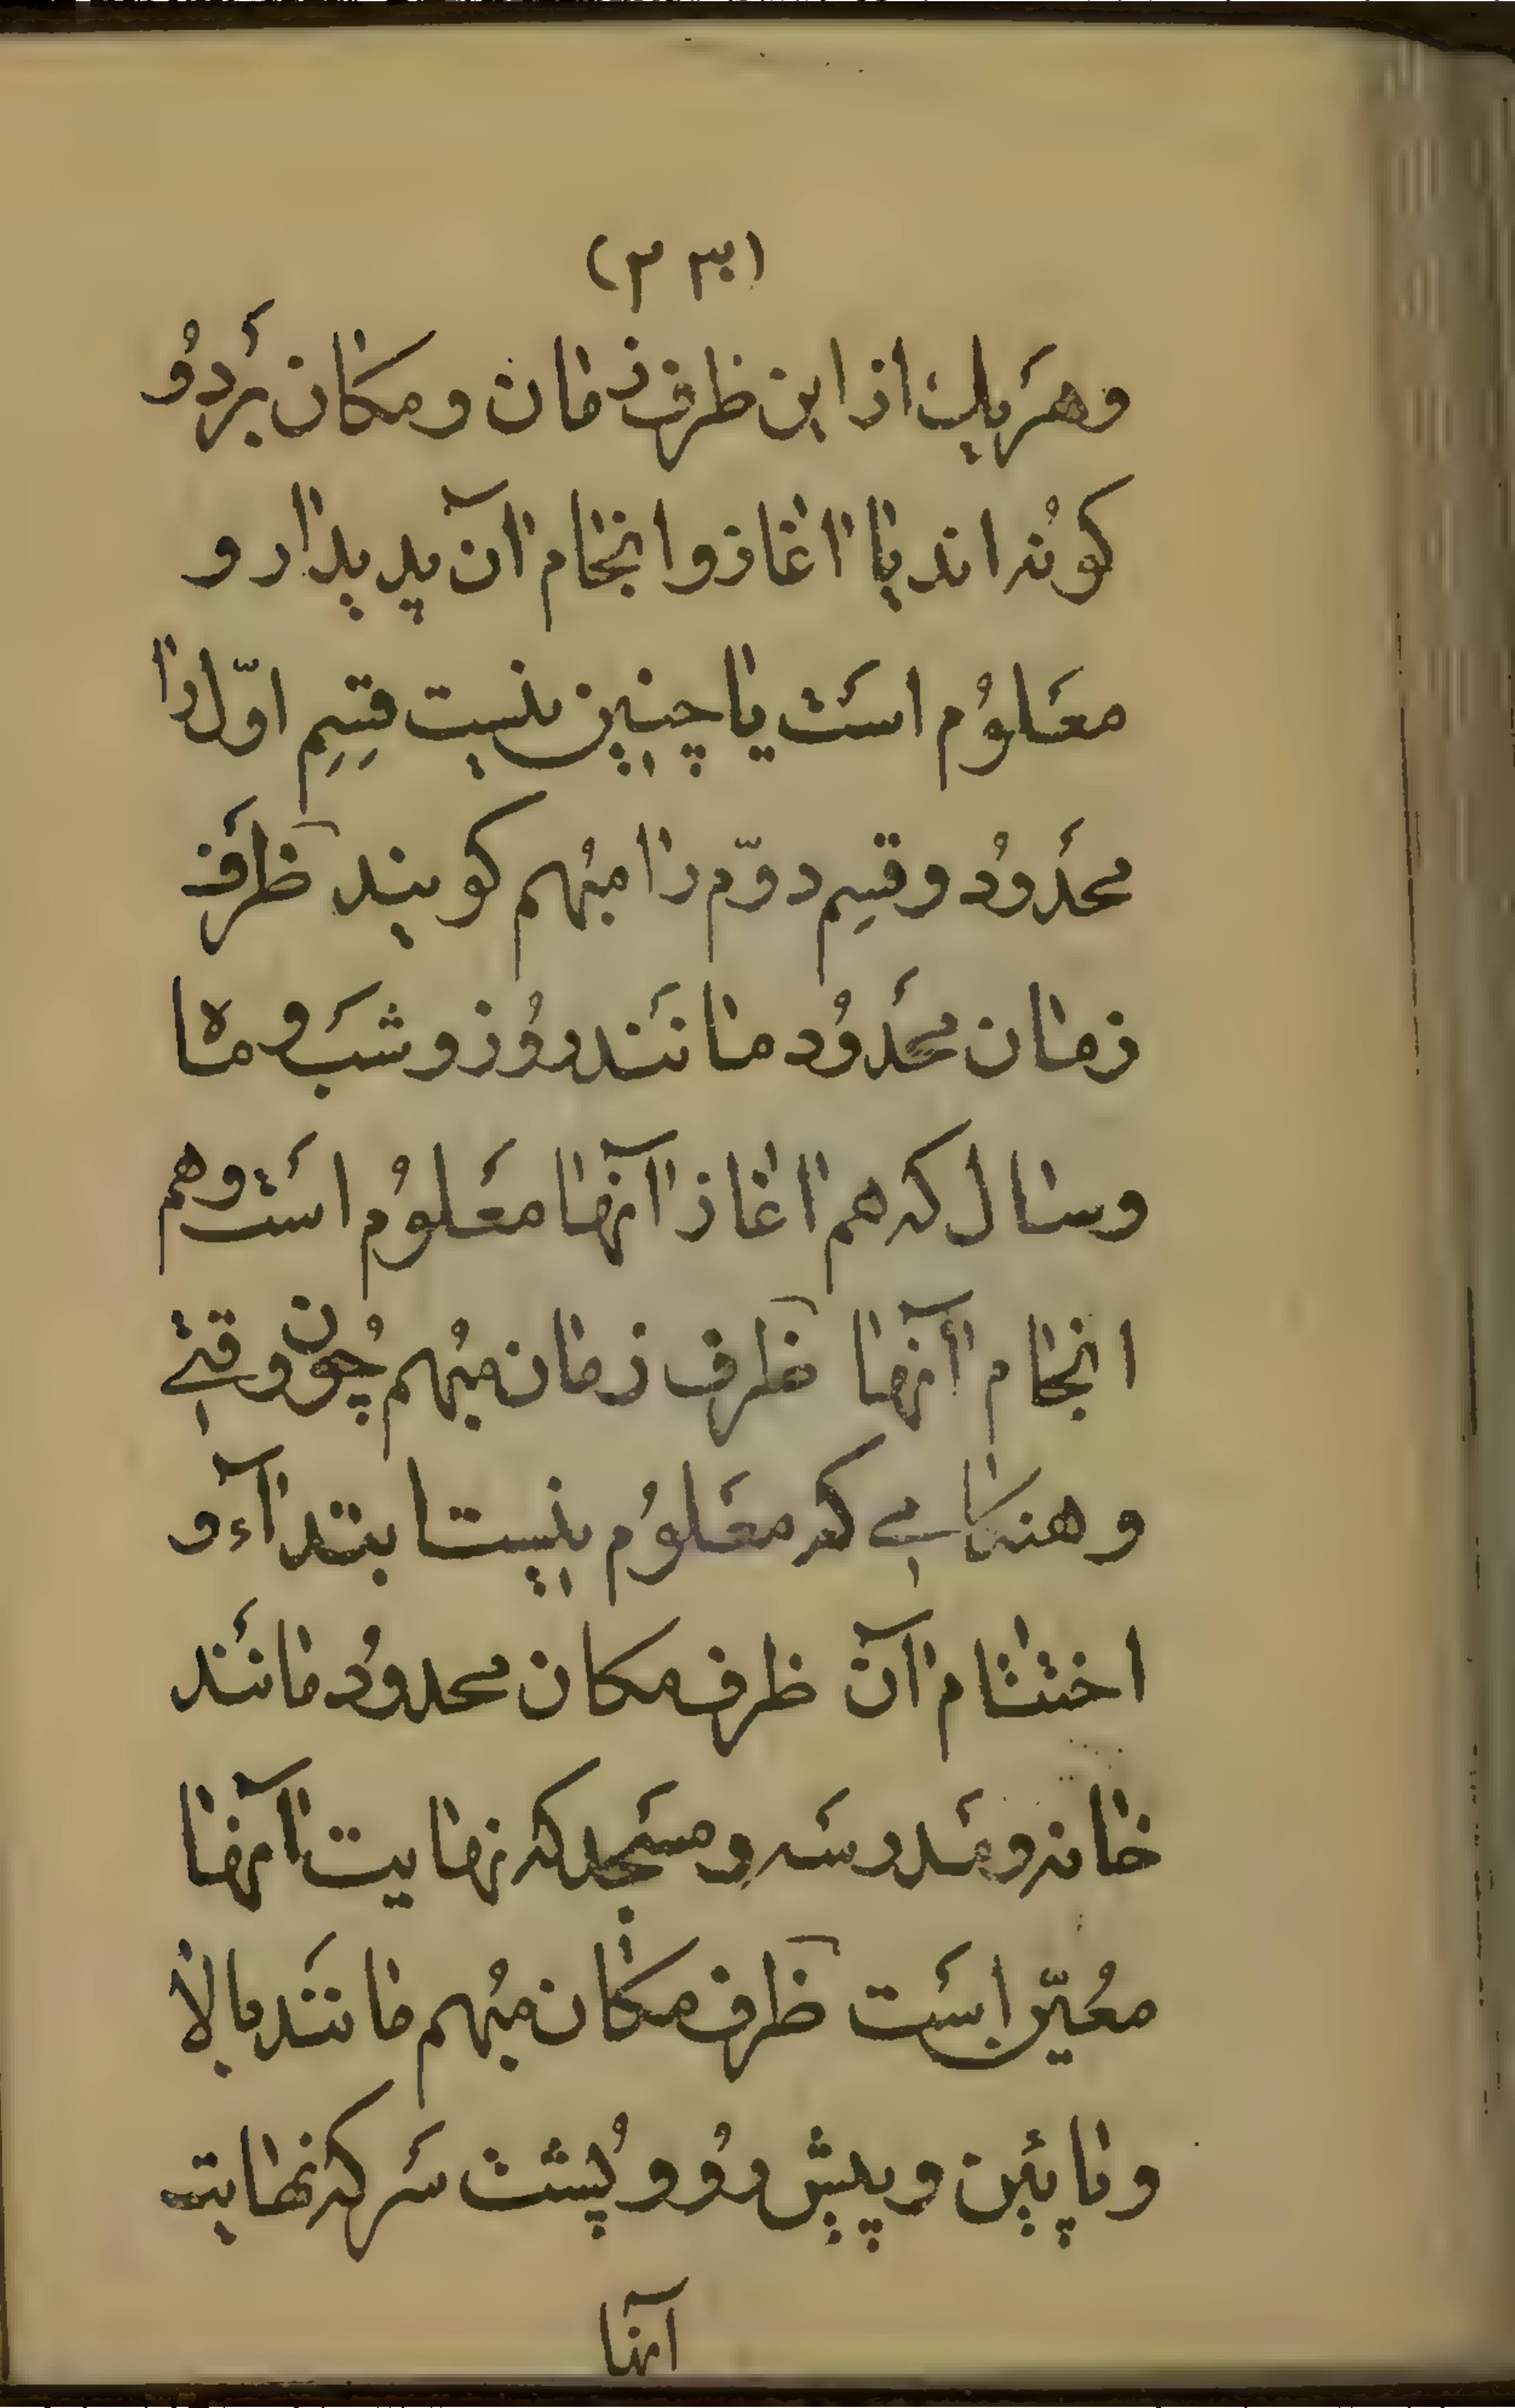 (۳۳)
وهَریک از این ظرف زمان و مکان بَردُو
کونُه اند یا اغاز و انجام آن پدیدار و
معَلوُم استَ یا چنین نیست قِسِمِ اوّل را
محدَوُد و قسِم دوّم را مبُهم کویند ظرَف
زمان محدَوُد مانَند روُز و شبَ و ماه
و سال که هم اغاز آنها معَلوُم استَ و هم
انجام آنها ظرف زمان مبُهم چُون وقتی
و هنکامی که معَلوُم نیست ابتداء و
اختتام آن ظرف مکان محدوُد مانَند
خانه و مَدرسَه و مسَجِد که نهایت آنها
معُیّن استَ ظرف مکان مبُهم مانَند بالا
و پائین و پیش روُ و پُشت سَر که نهایت
آنها